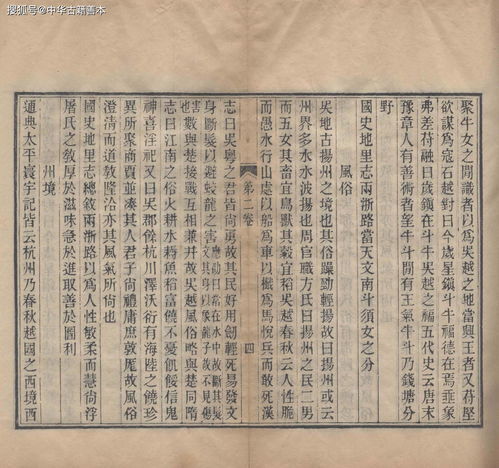 搜狐号@中华古籍善本
聚牛女之間識者以為吳越之地當興王者又苻堅
欲謀為寇石越對曰今歲星鎮斗牛福德在焉垂象
弗差苻融曰歲鎮在斗牛吳越之福五代史云唐末
豫章人有善術者望牛斗間有王氣牛斗乃錢塘分
野
國史地里志兩浙路當天文南斗須女之分
風俗
吳地古揚州之境也其俗躁勁輕揚故曰揚州或云
州界多水水波揚也周官職方氏曰揚州之民二男
而五女其畜宜鳥獸其穀宜稻吳越春秋云人性脆
而愚水行山處以船為車以楫為馬悅兵而敢死漢
第二卷
四
志曰吳粵之君皆尚勇故其民好用劍輕死易發文
身斷髮以避蛟龍之害應劭曰常在水中故斷其髮文其身以象龍子故不見傷害也
數與楚接戰互相兼并故吳越風俗略與楚同隋
志曰江南之俗火耕水耨魚稻富饒不憂飢餒信鬼
神喜淫祀又曰吳郡餘杭川澤沃衍有海陸之饒珍
異所聚商賈並湊其人君子尚禮庸庶敦厖故風俗
澄清而道教隆洽亦其風氣所尚也
國史地里志總敘兩浙路以為人性敏柔而慧尚浮
屠氏之敎厚於滋味急於進取善於圖利
州境
通典太平寰宇記皆云杭州乃春秋越國之西境西